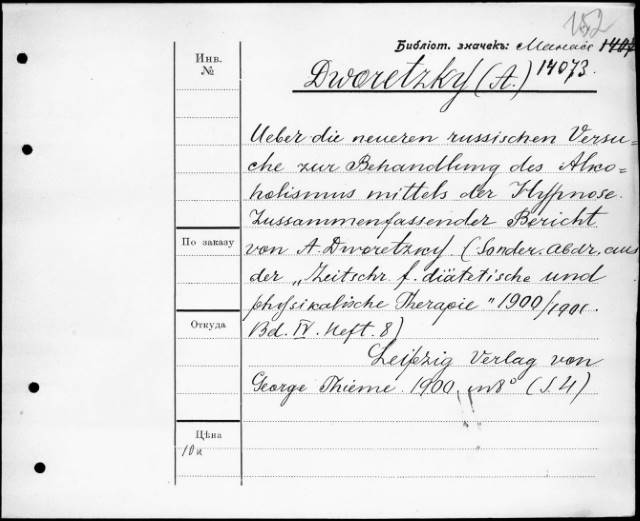 152
Библіот. значекъ: 1407
14073.
Инв.
№
Dworetzky (A.)
Ueber die neueren russischen Versu-
che zur Behandlung des Alko=
holismus mittels der Hypnose.
Zussammenfassender Bericht
По заказу
von A. Dworetzky. (Sonder. Abdr. aus
der „Zeitschr. f. diätetische und
physikalische Therapie" 1900/1901.
Откуда
Bd. IV. Heft. 8)
Leipzig Verlag von
George Thieme. 1900. in 8° (S. 4)
Цѣна
10к